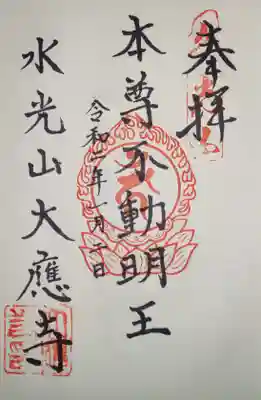 奉拝
本尊不動明王
令和二年一月十日
水光山大應寺